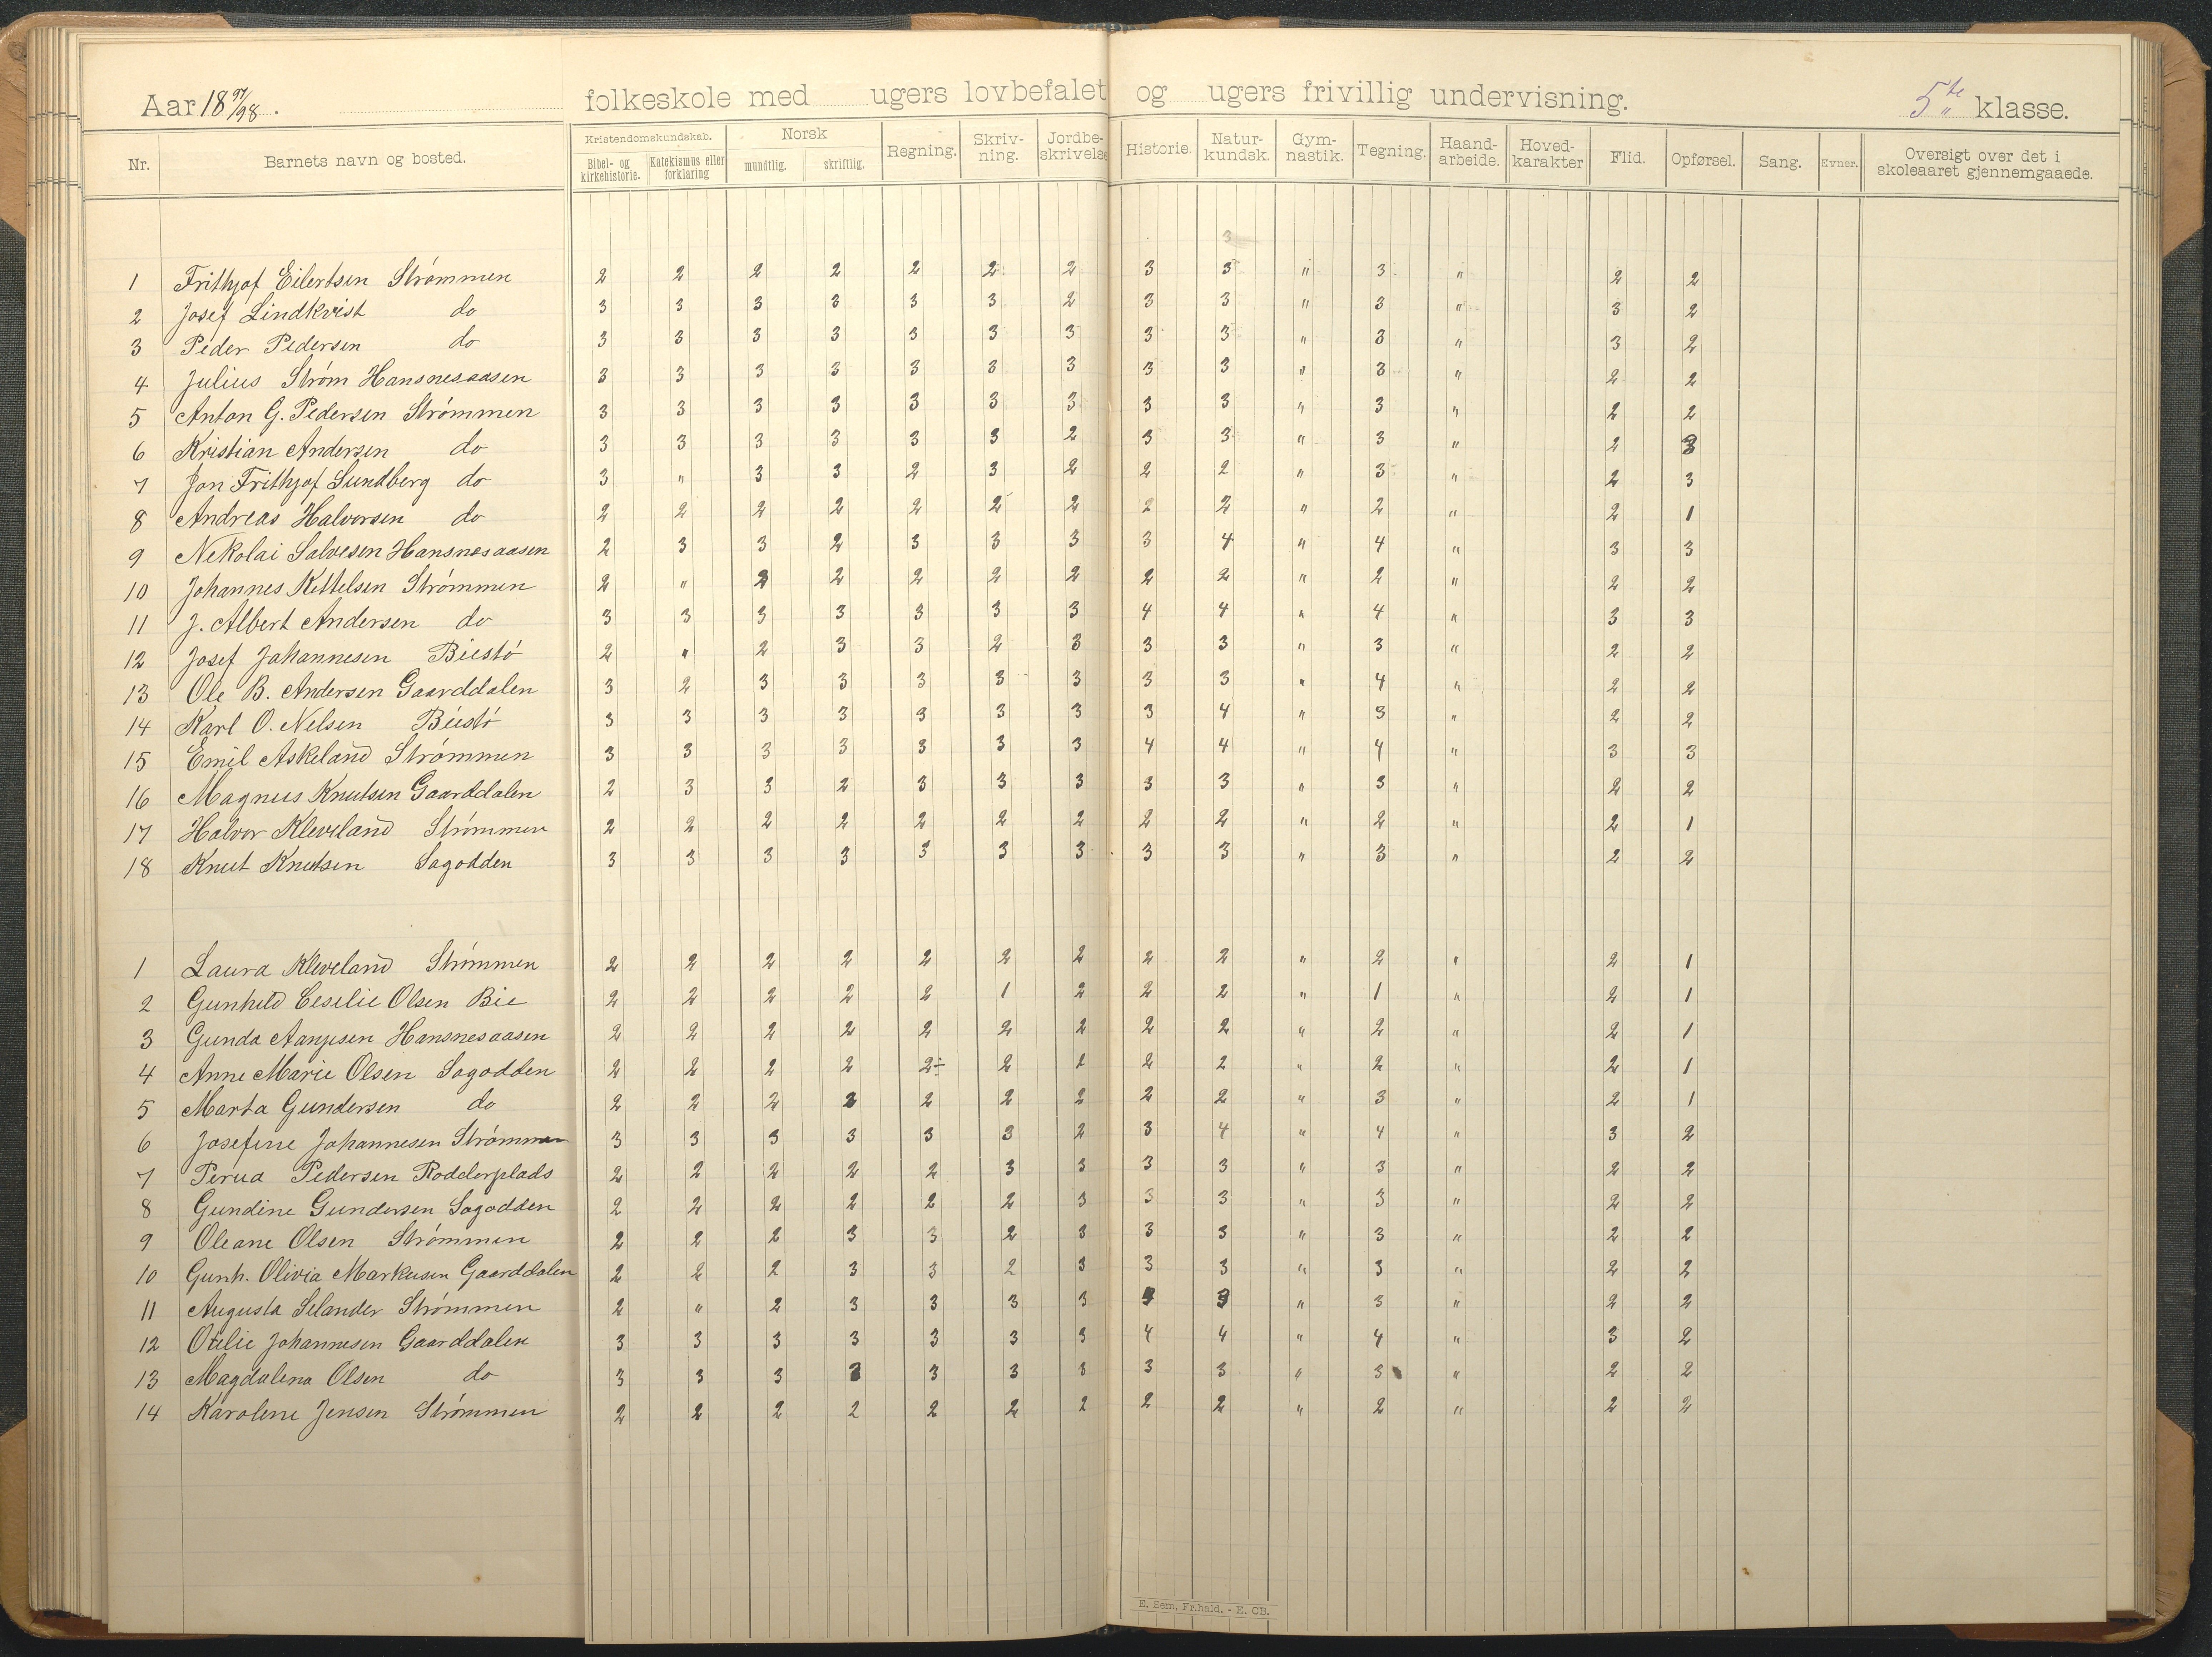 Aar 18 97/98. folkeskole med ugers lovbefalet og ugers frivillig undervisning. 5te klasse.
Nr. Barnets navn og bosted. Kristendomskundskab. Bibel- og kirkehistorie. Katekismus eller forklaring Norsk mundtlig. skriftlig. Regning. Skriv-ning. Jordbe-skrivelse Historie. Natur-kundsk. Gym-nastik. Tegning. Haand-arbeide. Hoved-karakter Flid. Opførsel. Sang. Evner. Oversigt over det i skoleaaret gjennemgaaede.
3
1 Frithjof Eilertsen Strømmen 2 2 2 2 2 2 2 3 3 " 3 " 2 2
2 Josef Lindkvist do 3 3 3 3 3 3 2 3 3 " 3 " 3 2
3 Peder Pedersen do 3 3 3 3 3 3 3 3 3 " 3 " 3 2
4 Julius Strøm Hansnesaasen 3 3 3 3 3 3 3 3 3 " 3 " 2 2
5 Anton G. Pedersen Strømmen 3 3 3 3 3 3 3 3 3 " 3 " 2 2
6 Kristian Andersen do 3 3 3 3 3 3 2 3 3 " 3 " 2 3
7 Jon Frithjof Sundberg do 3 " 3 3 2 3 2 2 2 " 3 " 2 3
8 Andreas Halvorsen do 2 2 2 2 2 2 2 2 2 " 2 " 2 1
9 Nekolai Salvesen Hansnesaasen 2 3 3 2 3 3 3 3 4 " 4 " 3 3
10 Johannes Kittelsen Strømmen 2 " 2 2 2 2 2 2 2 " 2 " 2 2
11 J. Albert Andersen do 3 3 3 3 3 3 3 4 4 " 4 " 3 3
12 Josef Johannesen Biestø 2 " 2 3 3 2 3 3 3 " 3 " 2 2
13 Ole B. Andersen Gaarddalen 3 2 3 3 3 3 3 3 3 " 4 " 2 2
14 Karl O. Nelsen Biestø 3 3 3 3 3 3 3 3 4 " 3 " 2 2
15 Emil Askeland Strømmen 3 3 3 3 3 3 3 4 4 " 4 " 3 3
16 Magnus Knutsen Gaarddalen 2 3 3 2 3 3 3 3 3 " 3 " 2 2
17 Halvor Kleveland Strømmen 2 2 2 2 2 2 2 2 2 " 2 " 2 1
18 Knut Knutsen Sagodden 3 3 3 3 3 3 3 3 3 " 3 " 2 2
1 Laura Kleveland Strømmen 2 2 2 2 2 2 2 2 2 " 2 " 2 1
2 Gunhild Ceselie Olsen Bie 2 2 2 2 2 1 2 2 2 " 1 " 2 1
3 Gunda Aanjesen Hansnesaasen 2 2 2 2 2 2 2 2 2 " 2 " 2 1
4 Anne Marie Olsen Sagodden 2 2 2 2 2÷ 2 2 2 2 " 2 " 2 1
5 Marta Gundersen do 2 2 2 2 2 2 2 2 2 " 3 " 2 1
6 Josefine Johannesen Strømmen 3 3 3 3 3 3 2 3 4 " 4 " 3 2
7 Perua Pedersen 2 2 2 2 2 3 3 3 3 " 3 " 2 2
8 Gundine Gundersen Sagodden 2 2 2 2 2 2 3 3 3 " 3 " 2 2
9 Oleane Olsen Strømmen 2 2 2 3 3 2 3 3 3 " 3 " 2 2
10 Gunh. Olivia Markusen Gaarddalen 2 2 2 3 3 2 3 3 3 " 3 " 2 2
11 Augusta Selander Strømmen 2 " 2 3 3 3 3 3 3 " 3 " 2 2
12 Otilie Johannesen Gaarddalen 3 3 3 3 3 3 3 4 4 " 4 " 3 2
13 Magdalena Olsen do 3 3 3 3 3 3 3 3 3 " 3 " 2 2
14 Karolene Jensen Strømmen 2 2 2 2 2 2 2 2 2 " 2 " 2 2
E. Sem, Fr.hald. - E. CB.